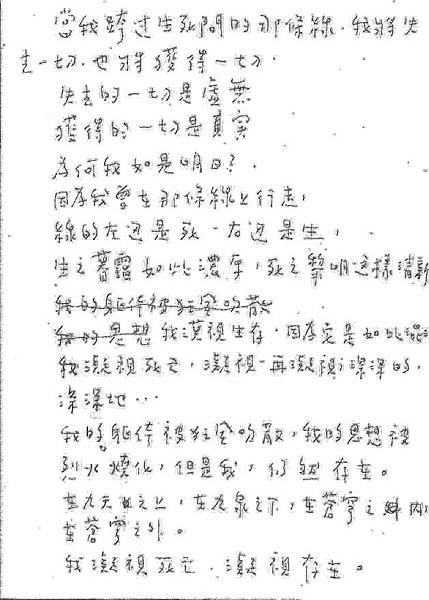 當我跨过生死間的那條線,我將失
去一切,也將獲得一切.
失去的一切是虛無
獲得的一切是真实
為何我如是明白?
因為我曾在那條線上行走,
線的左边是死,右边是生,
生之暮靄如此濃厚,死之黎明這樣清新
我的軀体被狂風吹散
我的思想 我漠視生存,因為它是如此混
我凝視死亡,凝視,再凝視,深深的,
深深地…
我的軀体被狂風吹散,我的思想被
烈火燒化,但是我,仍然存在。
在九天之上,在九泉之下,在蒼穹之內
在蒼穹之外。
我凝視死亡,凝視存在。